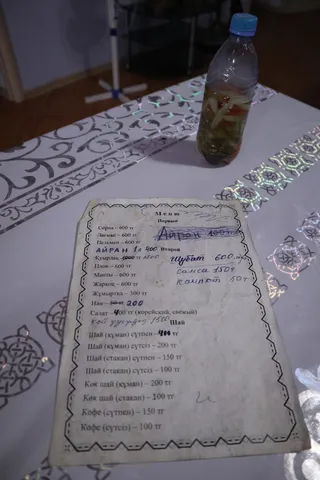 Меню
Первый
Сорпа – 600 тг
Лагман – 600 тг
Айран 100тг
Пельмени – 600 тг
АЙРАН 1л 400 Второй
Куырдак – 1500
Шубат 600
Плов – 600 тг
самса 150т
Манты – 600 тг
Компот 50т
Жаркое – 600 тг
Жұмыртқа – 300 тг
Нан – 200
Салат – 400 тг (корейский, свежий)
Шай
Шай (құман) сүтпен – 400 тг
Шай (құман) сүтсіз – 200 тг
Шай (стакан) сүтпен – 100 тг
Шай (стакан) сүтсіз – 100 тг
Көк шай (құман) – 200 тг
Көк шай (стакан) – 100 тг
Кофе (сүтпен) – 150 тг
Кофе (сүтсіз) – 100 тг